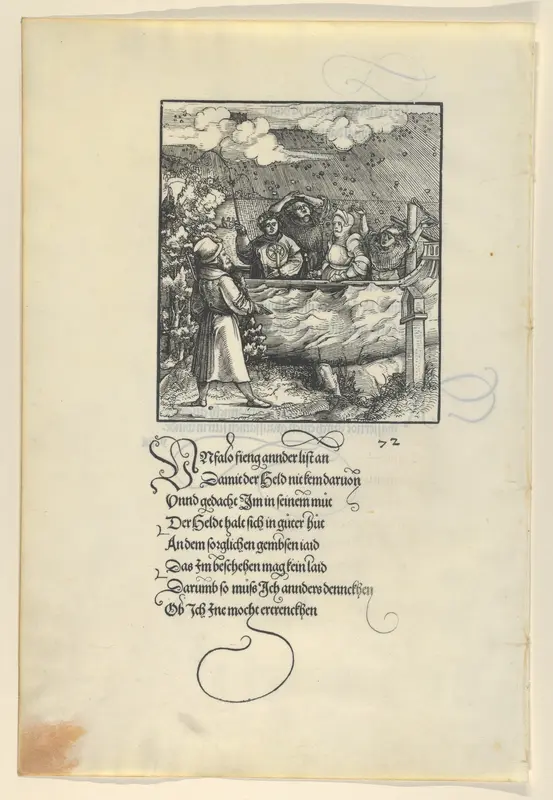 72
Vnfalo fieng annder list an
Damit der Held nit kem daruon
Vnnd gedacht Im in seinem müt
Der Heldt halt sich in güter hüt
An dem sorglichen gembsen iaid
Das Im beschehen mag kein laid
Darumb so müss Ich annders dennckhen
Ob Ich Ine mocht ertrenckhen